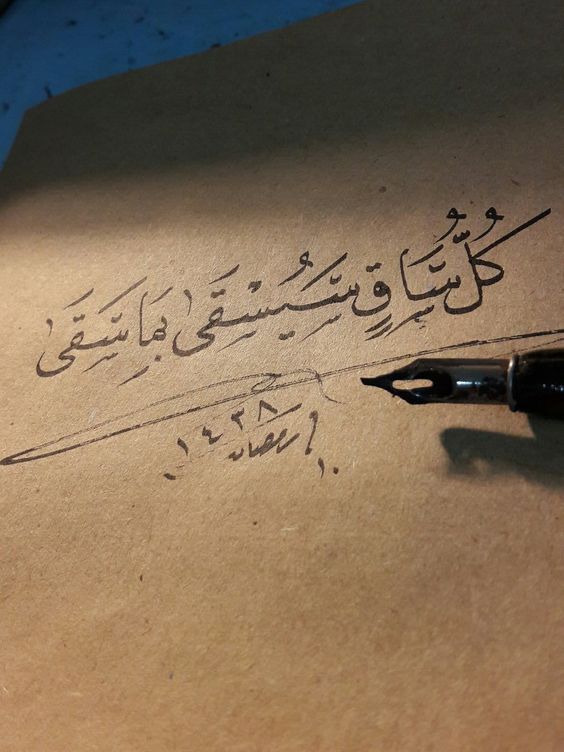 كُلُّ سَاقٍ سَيُسْقَى بِمَا سَقَى
١٠ رمضان ١٤٣٨